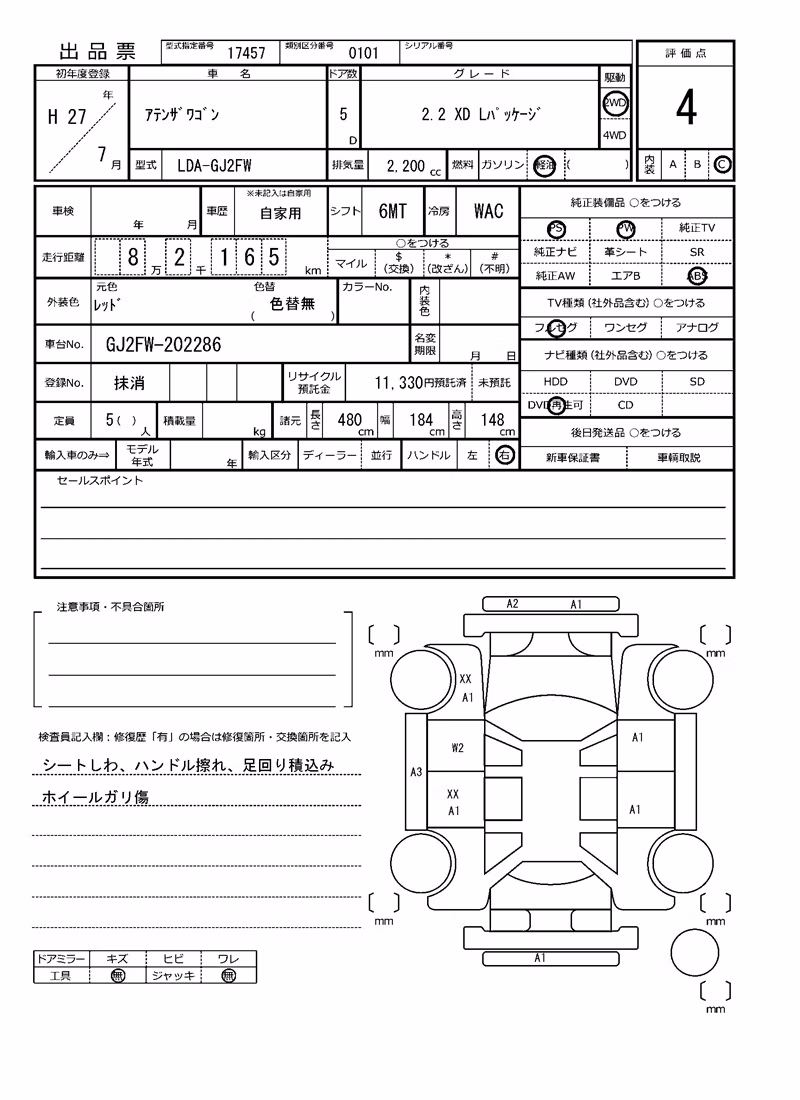 出品票
型式指定番号 17457 類別区分番号 0101 シリアル番号
評価点
4
内装 A B C
初年度登録 車名 ドア数 グレード 駆動
H 27 年 7 月
ｱﾃﾝｻﾞﾜｺﾞﾝ
5 D
2.2 XD Lﾊﾟｯｹｰｼﾞ
2WD
4WD
型式 LDA-GJ2FW 排気量 2,200 cc 燃料 ガソリン 軽油 ( )
車検 年 月 車歴 ※未記入は自家用 自家用 シフト 6MT 冷房 WAC
走行距離 8 万 2 千 1 6 5 km
○をつける
マイル $(交換) *(改ざん) #(不明)
外装色 元色 ﾚｯﾄﾞ 色替 ( 色替無 ) カラーNo. 内装色
車台No. GJ2FW-202286 名変期限 月 日
登録No. 抹消 リサイクル預託金 11,330円預託済 未預託
定員 5( ) 人 積載量 kg 諸元 長さ 480 cm 幅 184 cm 高さ 148 cm
輸入車のみ⇒ モデル年式 年 輸入区分 ディーラー 並行 ハンドル 左 右
純正装備品 ○をつける
PS PW 純正TV
純正ナビ 革シート SR
純正AW エアB ABS
TV種類(社外品含む)○をつける
フルセグ ワンセグ アナログ
ナビ種類(社外品含む)○をつける
HDD DVD SD
DVD再生可 CD
後日発送品 ○をつける
新車保証書 車輌取説
セールスポイント
注意事項・不具合箇所
検査員記入欄：修復歴「有」の場合は修復箇所・交換箇所を記入
シートしわ、ハンドル擦れ、足回り積込み
ホイールガリ傷
ドアミラー キズ ヒビ ワレ
工具 無 ジャッキ 無
A2 A1
mm mm
XX
A1
W2 A1
A3
XX
A1 A1
mm mm
A1
mm